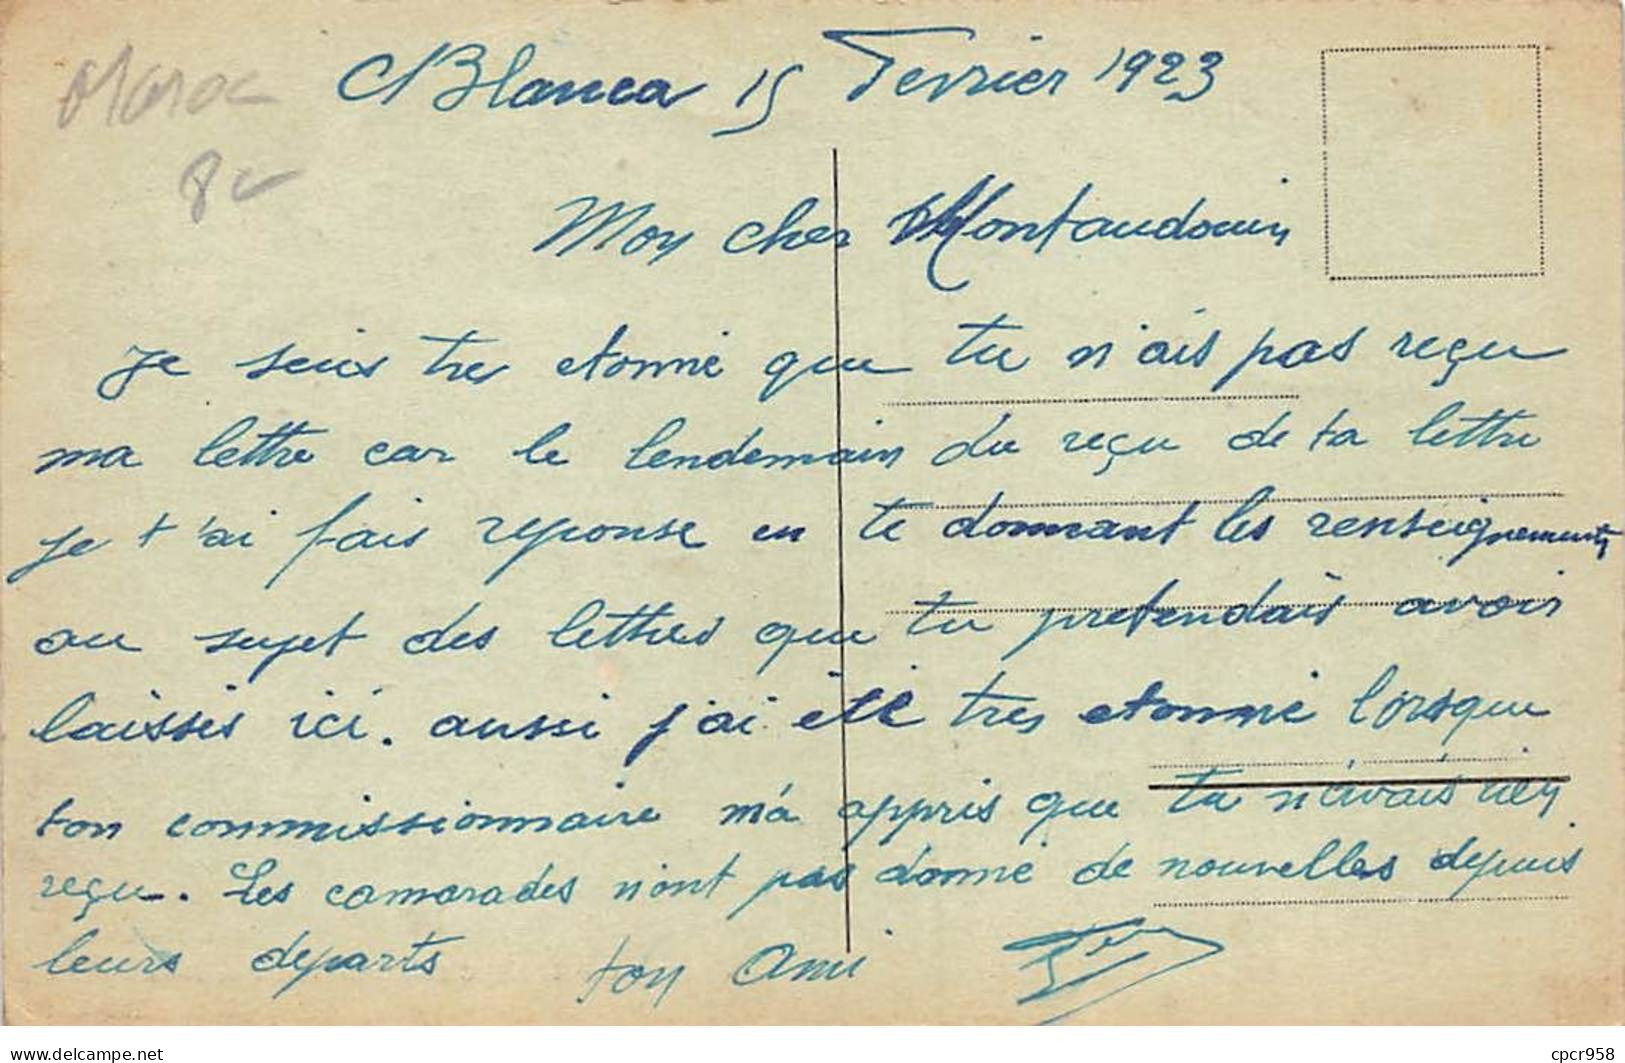 Maroc
8c
CBlanca 15 Fevrier 1923
Mon cher Montaudouin
Je suis tres etonné que tu n'ais pas reçu
ma lettre car le lendemain du reçu de ta lettre
je t'ai fais reponse en te donnant les renseignements
au sujet des lettres que tu pretendais avoir
laisses ici. aussi j'ai été tres etonné lorsque
ton commissionnaire m'a appris que tu n'avais rien
reçu. Les camarades n'ont pas donné de nouvelles depuis
leurs departs ton Ami
cpcr958